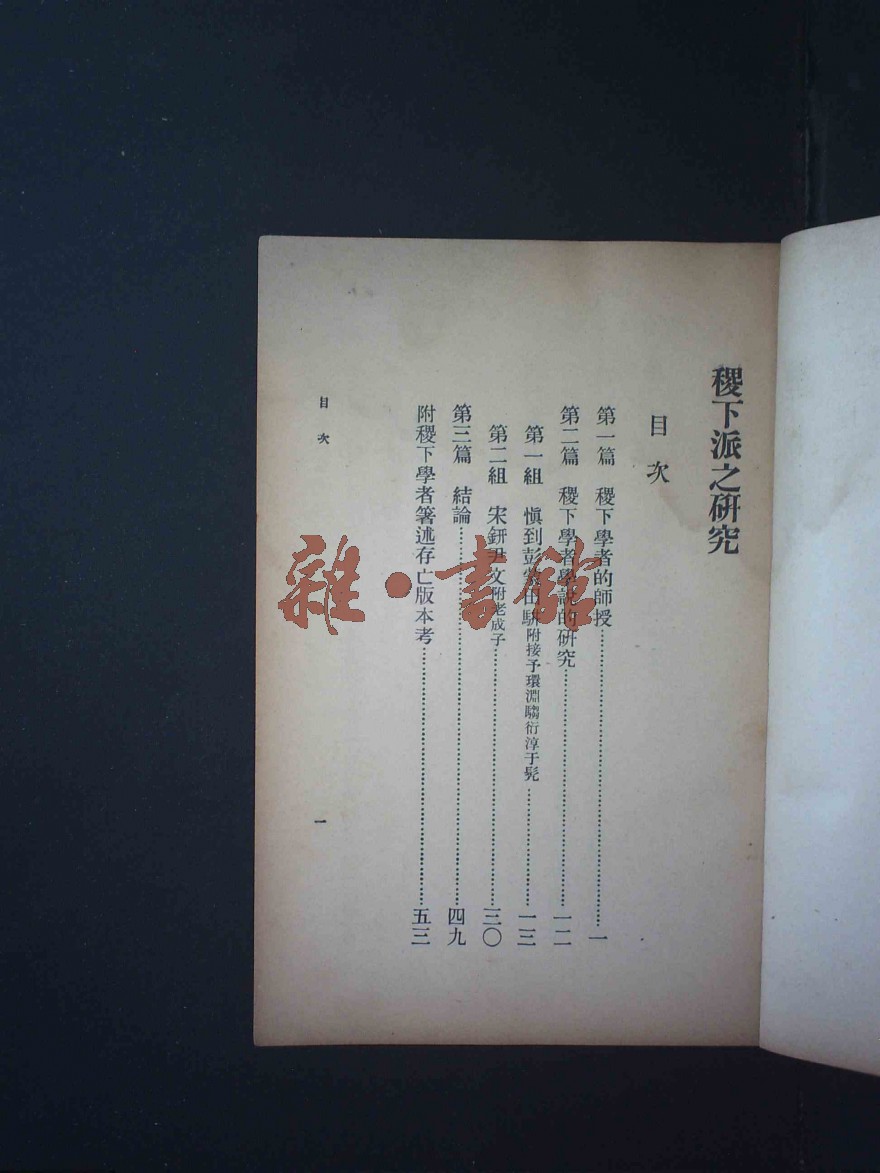 稷下派之硏究
目次
第一篇 稷下學者的師授……一
第二篇 稷下學者學說的硏究……一二
第一組 愼到彭蒙田駢附接予環淵騶衍淳于髡……一三
第二組 宋銒尹文附老成子……三〇
第三篇 結論……四九
附稷下學者箸述存亡版本考……五三
目次
一
雜·書館